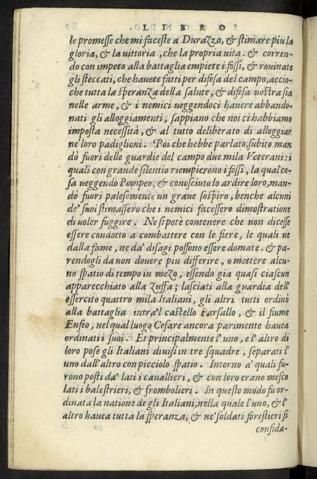 LIBRO
le promesse che mi faceste a Durazzo, & stimare piu la
gloria, & la uittoria, che la propria uita. & corren-
do con impeto alla battaglia empiete i fossi, & rouinate
gli steccati, che hauete fatti per difesa del campo, accio-
che tutta la speranza della salute, & difesa uostra sia
nelle arme, & i nemici ueggendoci hauere abbando-
nati gli alloggiamenti, sappiano che noi ci habbiamo
imposta necessità, & al tutto deliberato di alloggiar
ne' loro padiglioni. Poi che hebbe parlato, subito man
dò fuori delle guardie del campo due mila Veterani: i
quali con grande silentio riempierono i fossi, la qual co-
sa ueggendo Pompeo, & conosciuto lo ardire loro, man-
dò fuori palesemente un graue sospiro, benche alcuni
de' suoi stimassero che i nemici facessero dimostratione
di uoler fuggire. Ne si potè contenere che non dicesse
essere condotto a combattere con le fiere, le quali nè
dalla fame, ne da' disagi possono essere domate. & pa-
rendogli da non douere piu differire, o mettere alcu-
no spatio di tempo in mezo, essendo già quasi ciascun
apparecchiato alla zuffa; lasciati alla guardia dell'
essercito quattro mila Italiani, gli altri tutti ordinò
alla battaglia intra'l castello Farsallo, & il fiume
Enfio, nel qual luogo Cesare ancora parimente hauea
ordinati i suoi. Et principalmente l'uno, e l'altro di
loro pose gli Italiani diuisi in tre squadre, separati l'
uno dall'altro con picciolo spatio. Intorno a' quali fu-
rono posti da' lati i cauallieri, & con loro erano mesco
lati i balestrieri, & frombolieri. In questo modo fu or-
dinata la natione de gli Italiani, nella quale l'uno, & l'
altro hauea tutta la speranza, & ne' soldati forestieri si
confida-